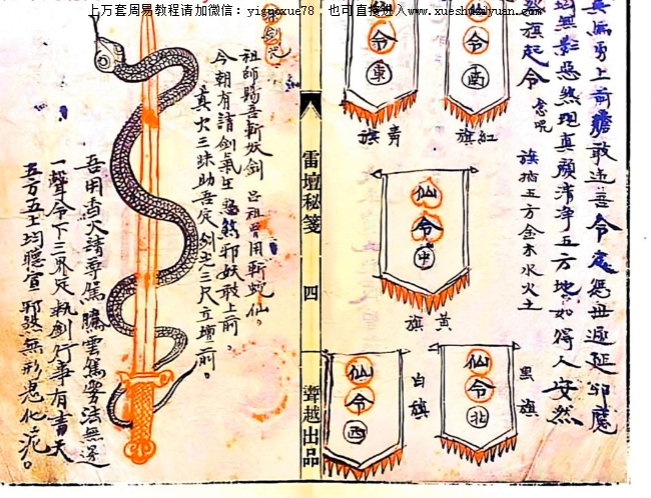 上万套周易教程请加微信：yiguoxue78，也可直接进入www.xueshuziyuan.com
吾上前誰敢逆吾令
均無影惡煞現真顏清净五方地如得人安然
旗起令 念咒
旗插五方金木水火土
令
東
青旗
仙
令
南
紅旗
仙
令
中
黃旗
仙
令
西
白旗
仙
令
北
黑旗
雷壇秘箋
四
聲越出品
祖師賜吾斬妖劍 呂祖曾用斬蛇仙。
今朝有請劍氣生 惡煞邪妖敢上前。
真火三昧助吾定 劍土三尺立壇前。
吾用香火請尊駕 騰雲駕雾法無邊
一聲令下三界定 執劍行事有青天
五方五土均聽宣 邪煞無形惡化泥。